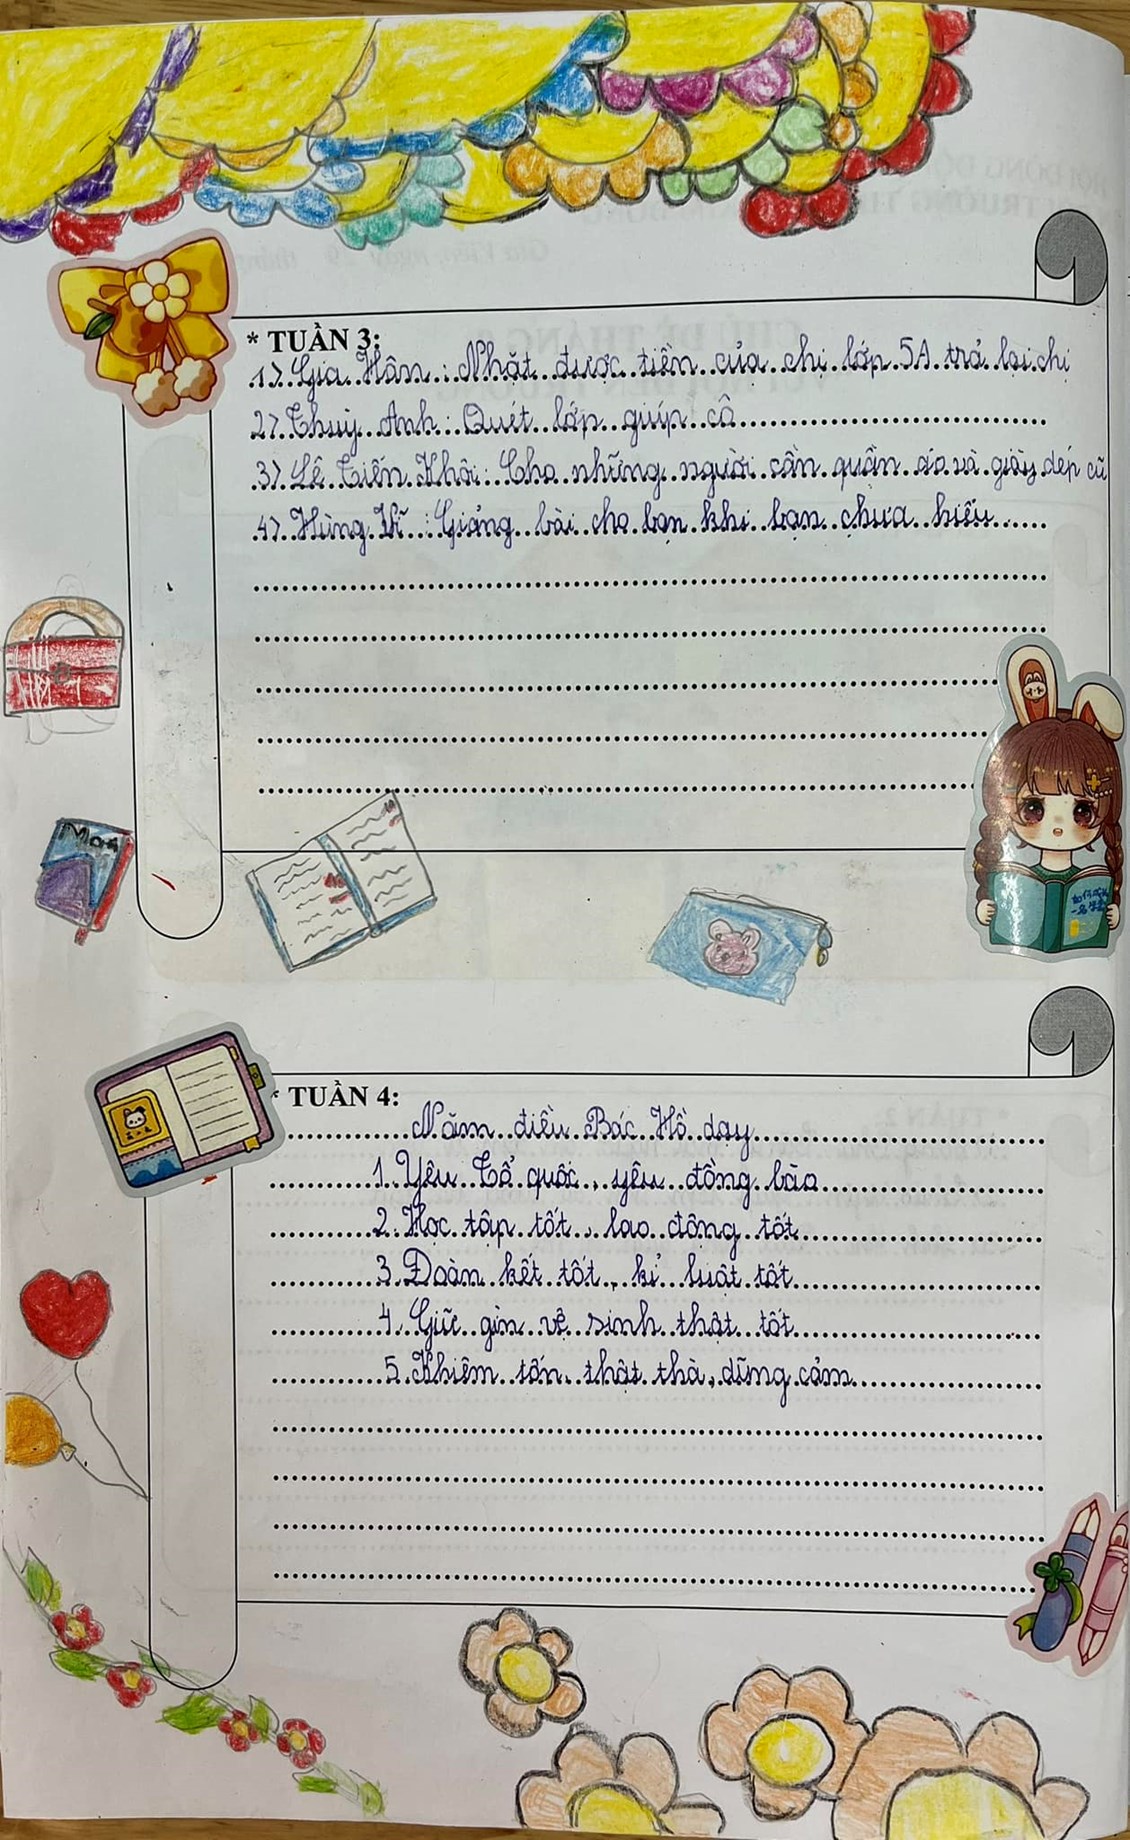 * TUẦN 3:
1> Gia Hân: Nhặt được tiền của chị lớp 5A trả lại chị
2> Thuỳ Anh: Quét lớp giúp cô
3> Lê Tiến Khôi: Cho những người cần quần áo và giày dép cũ
4> Hùng Vĩ: Giảng bài cho bạn khi bạn chưa hiểu
* TUẦN 4:
Năm điều Bác Hồ dạy
1. Yêu Tổ quốc, yêu đồng bào
2. Học tập tốt, lao động tốt
3. Đoàn kết tốt, kỉ luật tốt
4. Giữ gìn vệ sinh thật tốt
5. Khiêm tốn, thật thà, dũng cảm